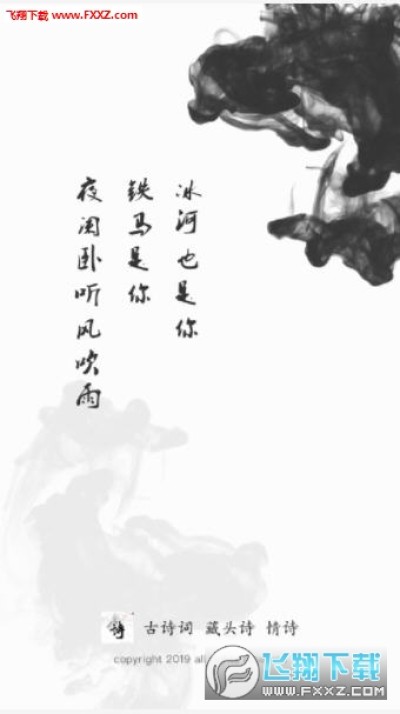 飞翔下载 www.FXXZ.com
夜阑卧听风吹雨
铁马是你
冰河也是你
诗
古诗词 藏头诗 情诗
copyright 2019
飞翔下载
WWW.FXXZ.COM